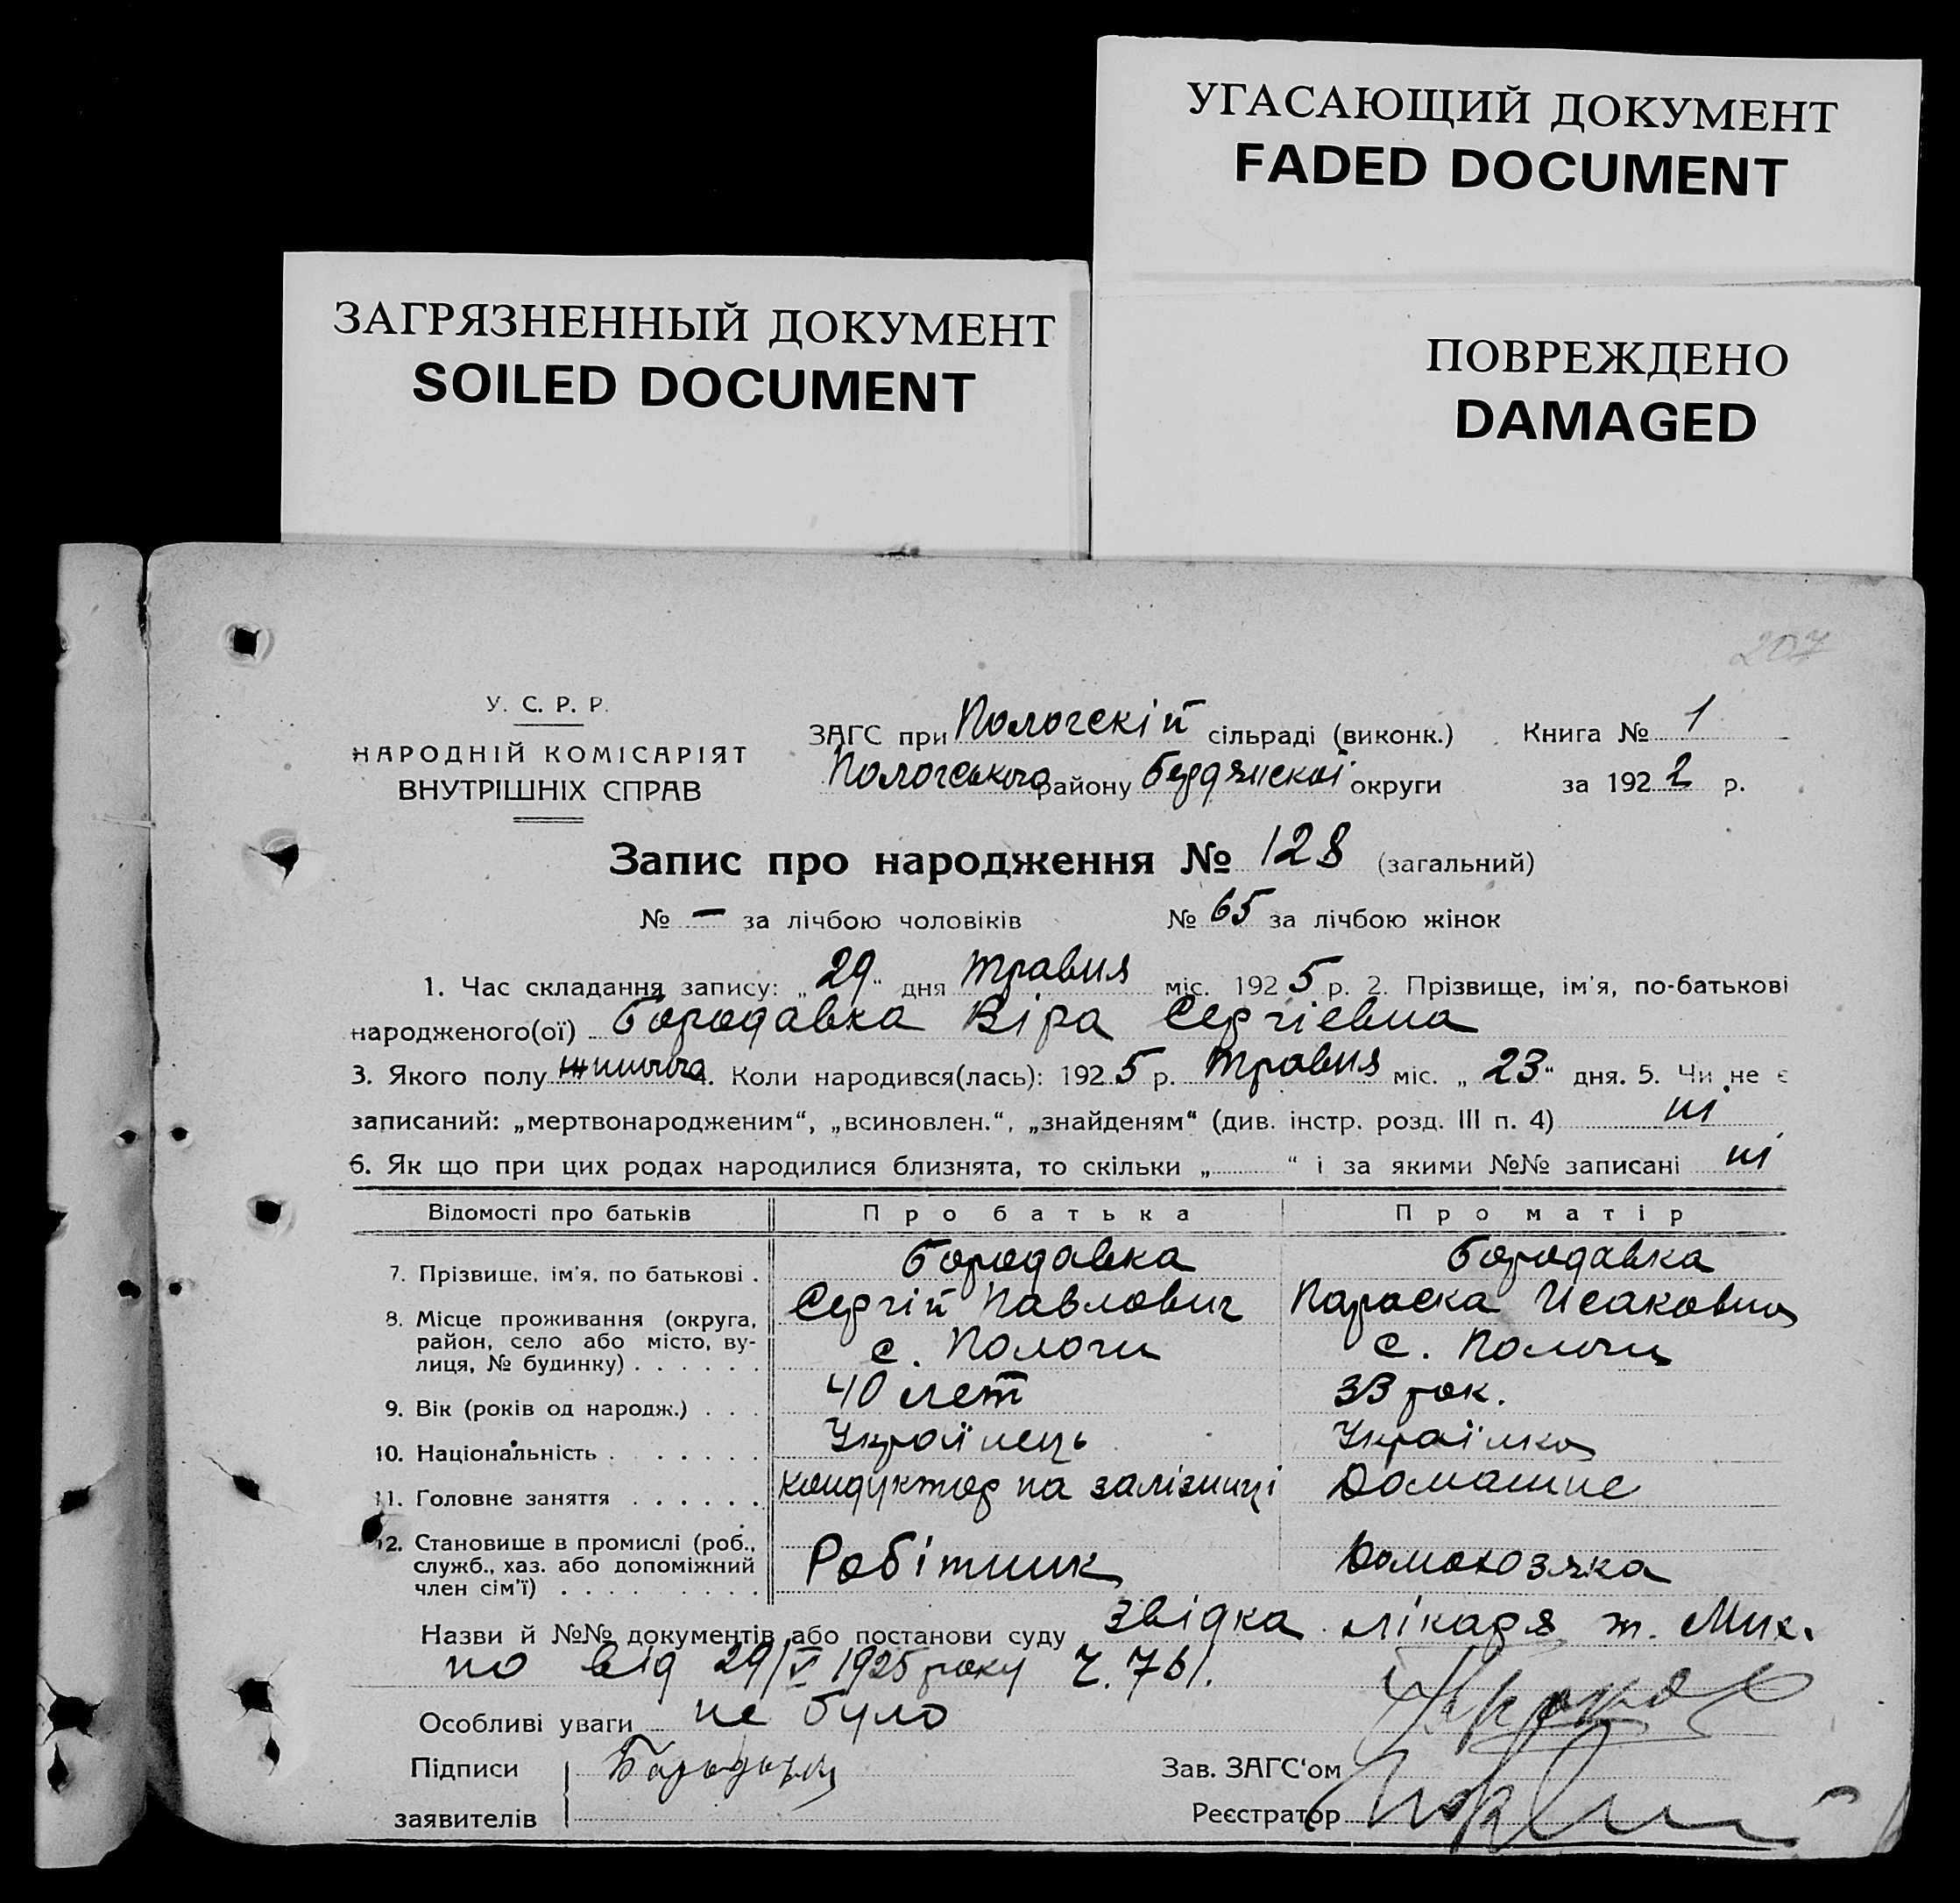 УГАСАЮЩИЙ ДОКУМЕНТ
FADED DOCUMENT
ЗАГРЯЗНЕННЫЙ ДОКУМЕНТ
SOILED DOCUMENT
ПОВРЕЖДЕНО
DAMAGED
207
У. С. Р. Р.
НАРОДНІЙ КОМІСАРІЯТ
ВНУТРІШНІХ СПРАВ
ЗАГС при Пологскій сільраді (виконк.) Книга № 1
Пологського району Бердянскої округи за 1922 р.
Запис про народження № 128 (загальний)
№ — за лічбою чоловіків № 65 за лічбою жінок
1. Час складання запису: „29“ дня травня міс. 1925 р. 2. Прізвище, ім'я, по-батькові
народженого(ої) Бородавка Віра Сергіевна
3. Якого полу жиночого. Коли народився(лась): 1925 р. травня міс. „23“ дня. 5. Чи не є
записаний: „мертвонародженим“, „всиновлен.“, „знайденям“ (див. інстр. розд. III п. 4) ні
6. Як що при цих родах народилися близнята, то скільки „ “ і за якими №№ записані ні
Відомості про батьків Про батька Про матір
7. Прізвище, ім'я, по батькові . Бородавка Бородавка
Сергій Павлович Параска Исаковна
8. Місце проживання (округа,
район, село або місто, ву-
лиця, № будинку) . . . . . . с. Пологи с. Пологи
9. Вік (років од народж.) . . . 40 лет 33 рок.
10. Національність . . . . . . Українець Українка
11. Головне заняття . . . . . . кондуктор на залізниці Домашнє
12. Становище в промислі (роб.,
служб., хаз. або допоміжний
член сім'ї) . . . . . . . . . Робітник Домохозяка
Назви й №№ документів або постанови суду звідка лікаря ж. Мик.
по від 29/V 1925 року Ч. 761.
Особливі уваги не було
Підписи
заявителів
Зав. ЗАГС'ом
Реєстратор